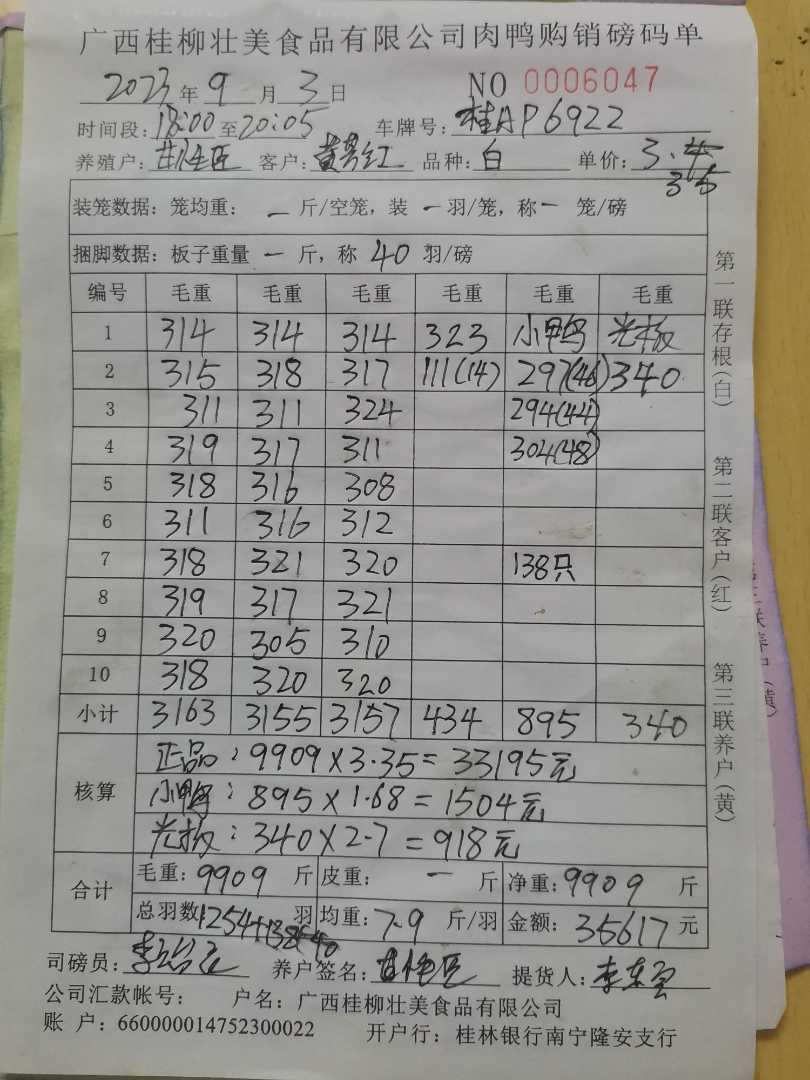 广西桂柳壮美食品有限公司肉鸭购销磅码单
2023年9月3日 NO 0006047
时间段:18:00至20:05 车牌号:桂AP6922
养殖户: 客户:黄 红 品种:白 单价:3.
35
装笼数据:笼均重: 一 斤/空笼,装 一 羽/笼,称 一 笼/磅
捆脚数据:板子重量 一 斤,称 40 羽/磅
编号 毛重 毛重 毛重 毛重 毛重 毛重
1 314 314 314 323 小鸭 光板
2 315 318 317 111(14) 297(46) 340
3 311 311 324 294(44)
4 319 317 311 304(48)
5 318 316 308
6 311 316 312
7 318 321 320 138只
8 319 317 321
9 320 305 310
10 318 320 320
小计 3163 3155 3157 434 895 340
核算 正品:9909×3.35=33195元
小鸭:895×1.68=1504元
光板:340×2.7=918元
合计 毛重:9909 斤 皮重: 一 斤 净重:9909 斤
总羽数:1254+138+40 羽 均重:7.9 斤/羽 金额:35617元
司磅员: 养户签名: 提货人:
公司汇款帐号: 户名:广西桂柳壮美食品有限公司
账 户:660000014752300022 开户行:桂林银行南宁隆安支行
第一联存根(白)
第二联客户(红)
第三联养户(黄)